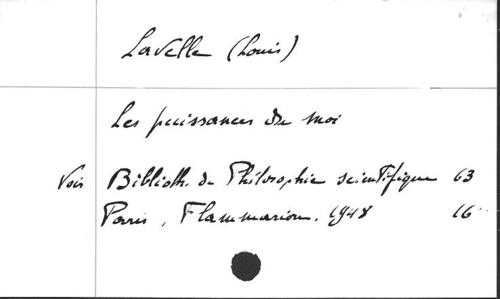 Lavelle (Louis)
Les puissances du moi
Voir Biblioth. de Philosophie scientifique 63
Paris, Flammarion. 1948 16